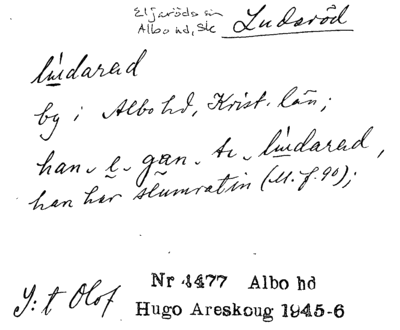 Eljaröds sn
Albo hd, Sk Ludaröd
lúdarad
by i Albo hd, Krist. län;
han e gan te lúdarad,
han har slumratin (M. f. 90);
Y: t Olof
Nr 4477 Albo hd
Hugo Areskoug 1945-6